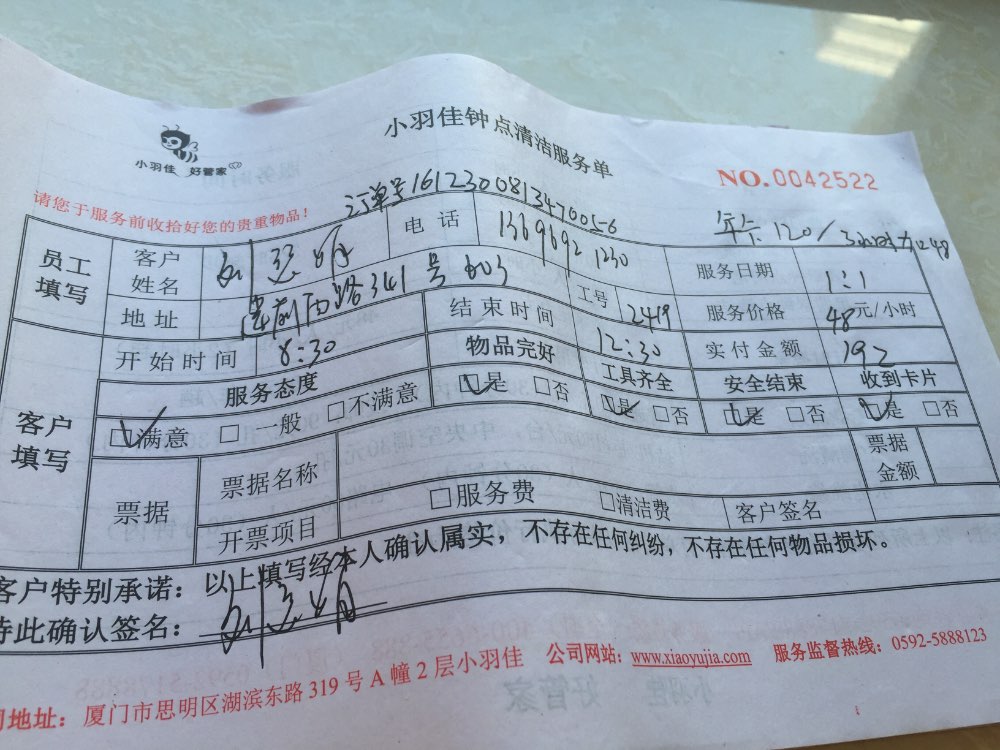 小羽佳 好管家
小羽佳钟点清洁服务单
NO.0042522
请您于服务前收拾好您的贵重物品!
订单号161230081347005-6
年卡120/
员工填写
客户姓名
电话
服务日期 1:1
地址 341号603
工号 2419
服务价格 48元/小时
开始时间 8:30
结束时间 12:30
实付金额 192
客户填写
服务态度 物品完好 工具齐全 安全结束 收到卡片
☑满意 □一般 □不满意 ☑是 □否 ☑是 □否 ☑是 □否 ☑是 □否
票据
票据名称
票据金额
开票项目 □服务费 □清洁费 客户签名
客户特别承诺:以上填写经本人确认属实,不存在任何纠纷,不存在任何物品损坏。
特此确认签名:
地址:厦门市思明区湖滨东路319号A幢2层小羽佳 公司网站:www.xiaoyujia.com 服务监督热线:0592-5888123